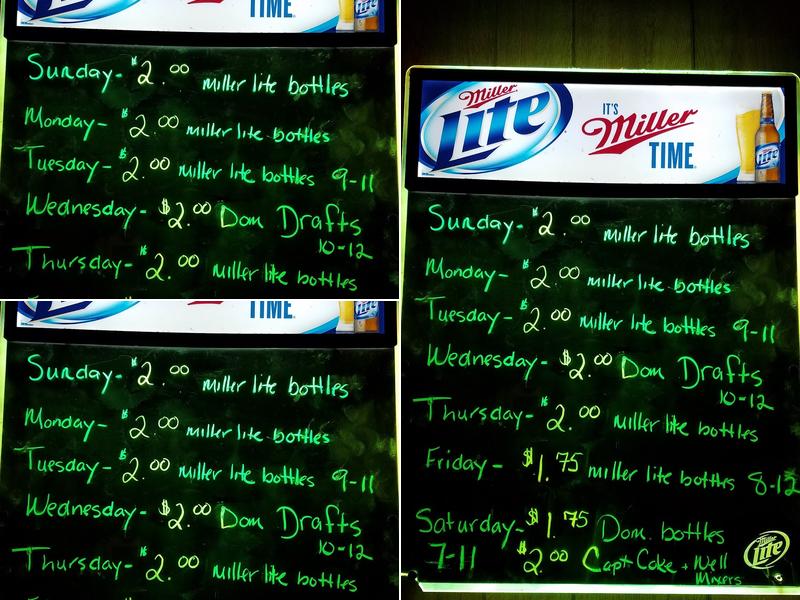 TIME
Sunday- $2.00 miller lite bottles
Monday- $2.00 miller lite bottles
Tuesday- $2.00 miller lite bottles 9-11
Wednesday- $2.00 Dom Drafts
10-12
Thursday- $2.00 miller lite bottles
TIME
Sunday- $2.00 miller lite bottles
Monday- $2.00 miller lite bottles
Tuesday- $2.00 miller lite bottles 9-11
Wednesday- $2.00 Dom Drafts
10-12
Thursday- $2.00 miller lite bottles
Miller
Lite
IT'S
Miller
TIME
Lite
Sunday- $2.00 miller lite bottles
Monday- $2.00 miller lite bottles
Tuesday- $2.00 miller lite bottles 9-11
Wednesday- $2.00 Dom Drafts
10-12
Thursday- $2.00 miller lite bottles
Friday- $1.75 miller lite bottles 8-12
Saturday- $1.75 Dom. bottles
7-11 $2.00 Capt Coke + Well
Mixers
Miller
Lite